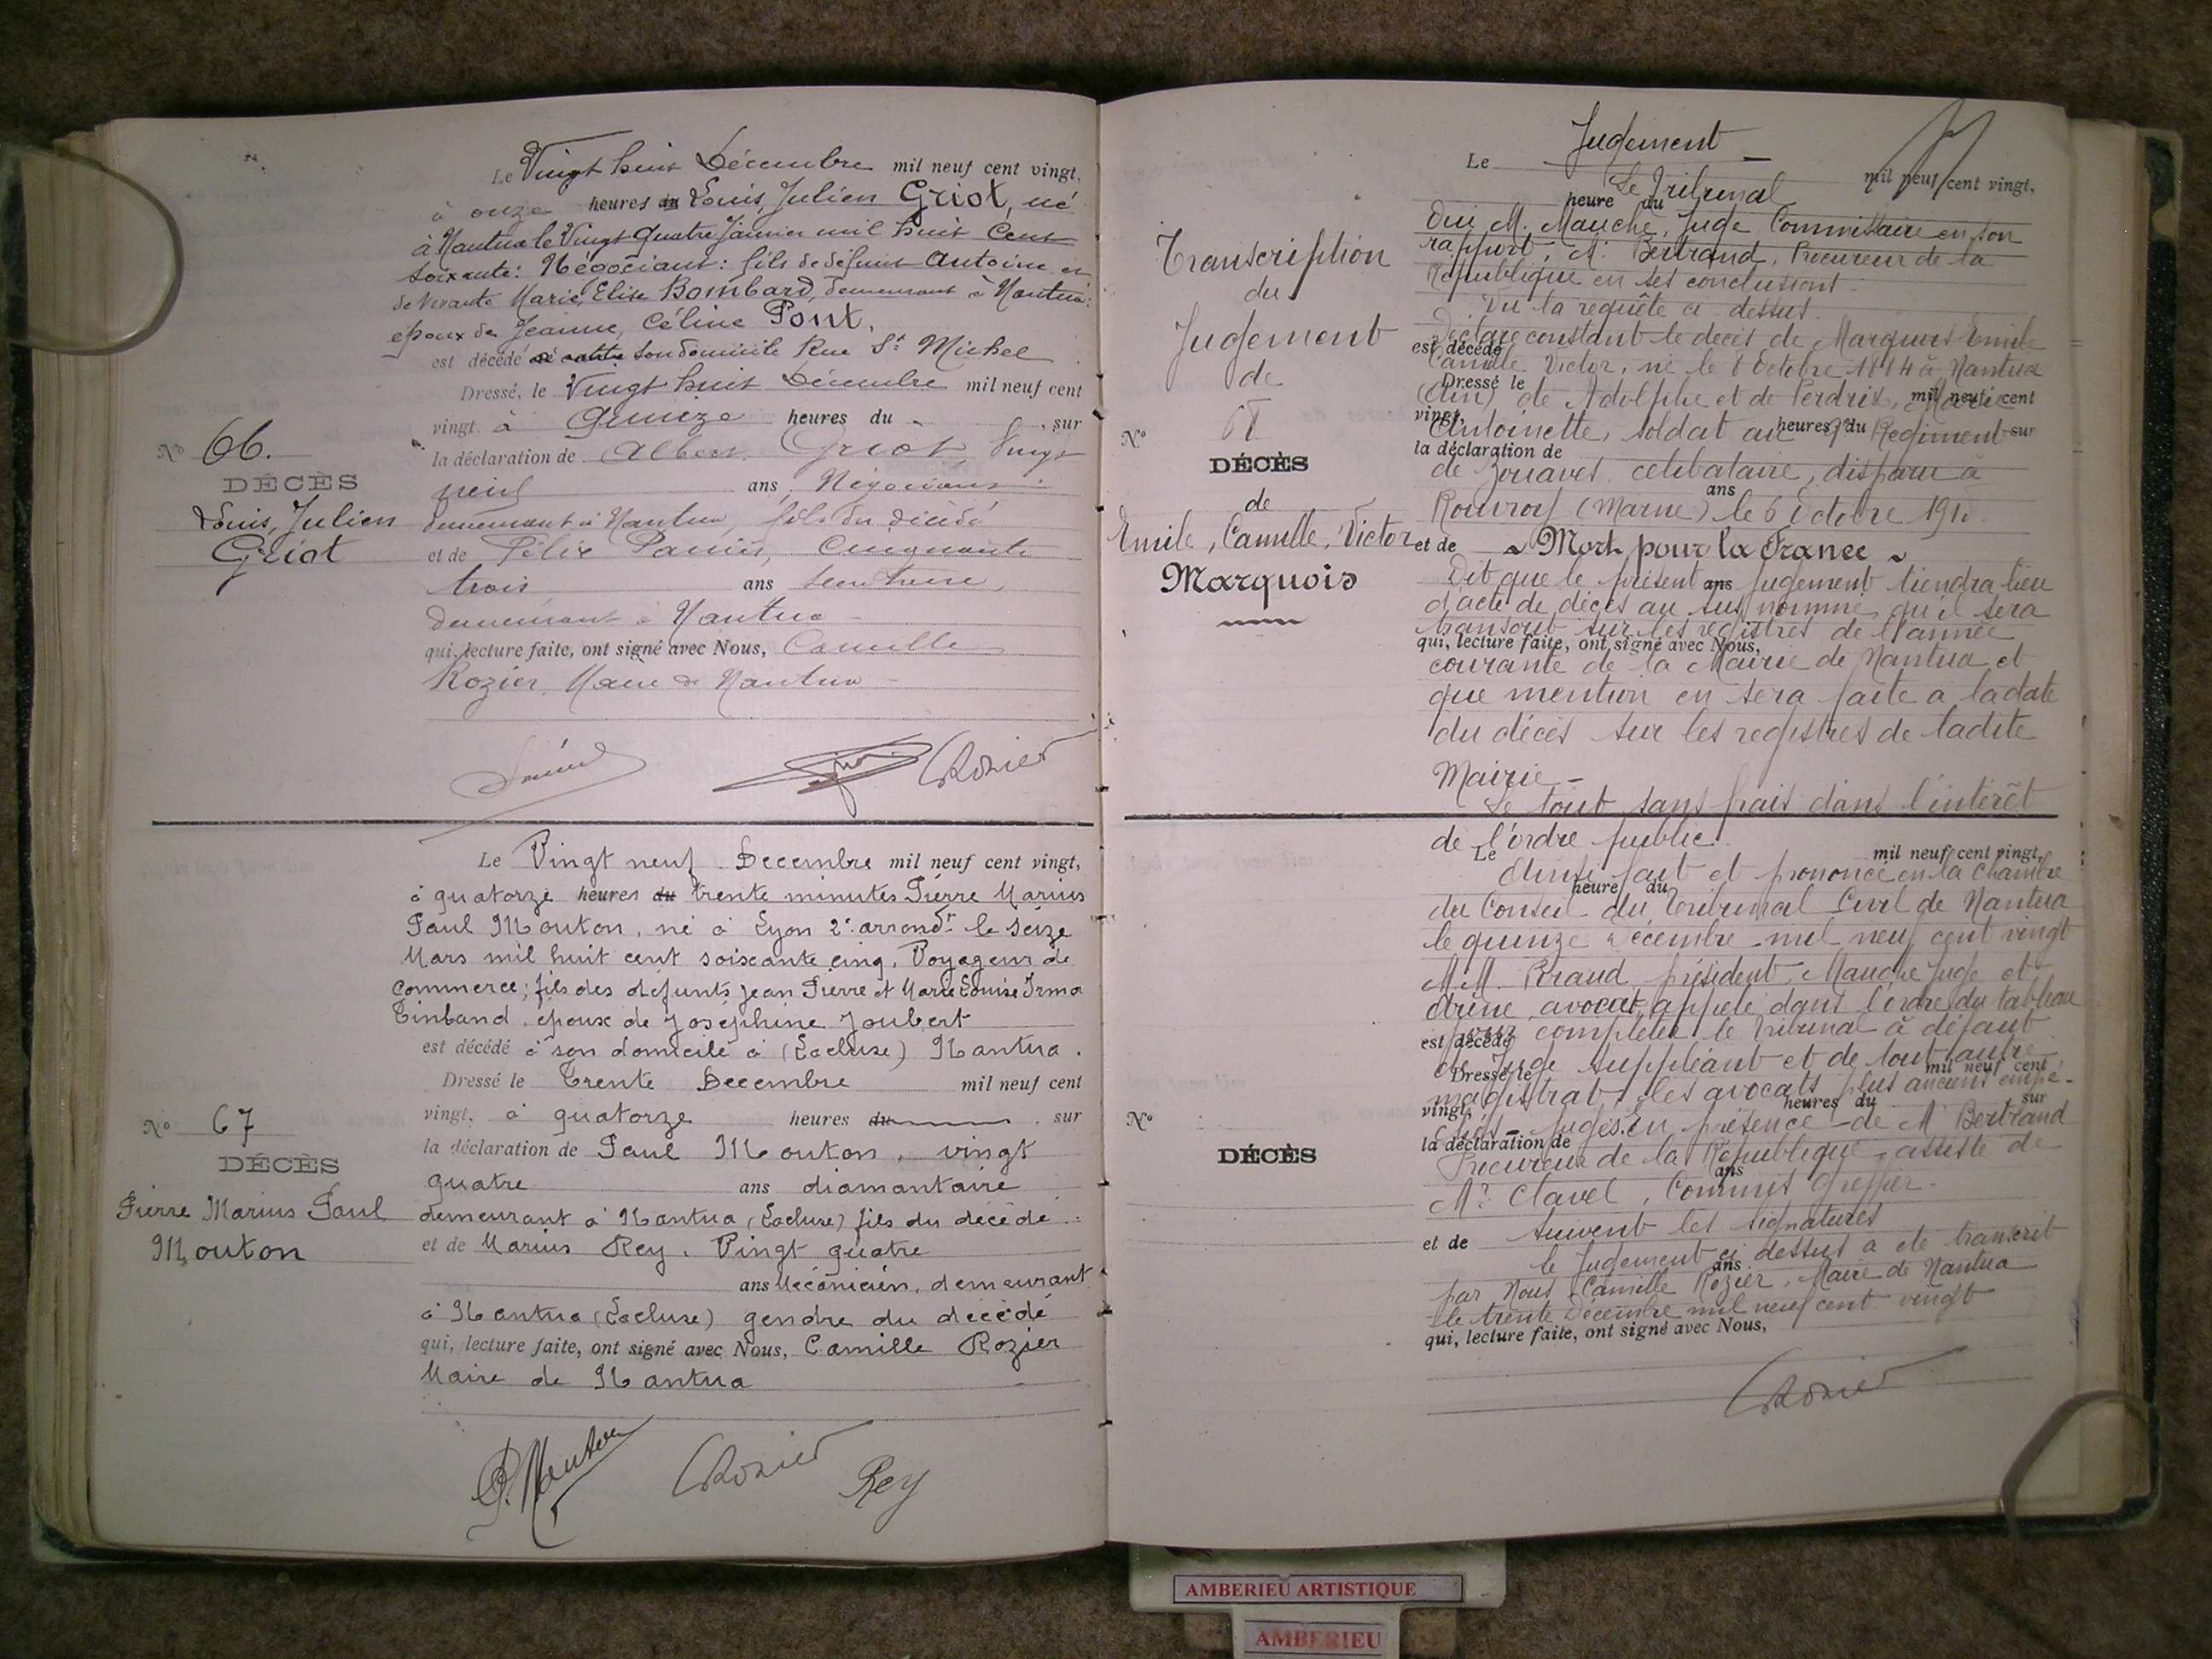 Le Vingt huit Décembre mil neuf cent vingt,
à onze heures du Louis, Julien Griot, né
à Nantua le Vingt quatre Janvier mil huit Cent
soixante: Négociant: fils de défunt Antoine et
de vivante Marie, Elise Bombard, demeurant à Nantua:
époux de Jeanne, Céline Pont,
est décédé en son domicile Rue St Michel
Dressé, le Vingt huit Décembre mil neuf cent
vingt à Quinze heures du , sur
la déclaration de Albert Griot, Vingt
neuf ans, Négociant
demeurant à Nantua, fils du décédé
et de Félix Cinquante
trois ans
demeurant à Nantua
qui, lecture faite, ont signé avec Nous, Camille
Rozier, Maire de Nantua
No 66.
DÉCÈS
Louis, Julien
Griot
CRozier
Le Vingt neuf Decembre mil neuf cent vingt,
à quatorze heures du trente minutes Pierre Marius
Paul Mouton, né à Lyon 2e arrondt le seize
Mars mil huit cent soixante cinq, Voyageur de
commerce; fils des défunts Jean Pierre et Marie Louise Irma
Tinband, époux de Joséphine Joubert
est décédé à son domicile à (Lacluse) Nantua.
Dressé le Trente Decembre mil neuf cent
vingt, à quatorze heures du , sur
la déclaration de Paul Mouton, vingt
quatre ans diamantaire
demeurant à Nantua (Lacluse) fils du décédé
et de Marius Rey, Vingt quatre
ans Mécanicien, demeurant
à Nantua (Lacluse) gendre du décédé
qui, lecture faite, ont signé avec Nous, Camille Rozier
Maire de Nantua
No 67
DÉCÈS
Pierre Marius Paul
Mouton
P. Mouton CRozier Rey
Transcription
du
Jugement
de
No 68
DÉCÈS
de
Emile, Camille, Victor
Marquois
Le Jugement mil neuf cent vingt,
Le Tribunal
heure du
Oui M. Mauche, Juge Commissaire en son
rapport, M. Bertrand, Procureur de la
République en ses conclusions.
Vu la requête ci-dessus.
Déclare constant le décès de Marquois Emile
est décédé
Camille Victor, né le 8 Octobre 1894 à Nantua
Dressé le mil neuf cent
(Ain) de Adolphe et de Perdrix, Marie
vingt, heures du sur
Antoinette, soldat au Régiment
la déclaration de
de Zouaves, célibataire, disparu à
ans
Rouvroy (Marne) le 6 Octobre 1915.
et de ~ Mort pour la France ~
Dit que le présent jugement tiendra lieu
ans
d'acte de décès au sus nommé, qu'il sera
transcrit sur les registres de l'année
qui, lecture faite, ont signé avec Nous,
courante de la Mairie de Nantua et
que mention en sera faite à la date
du décès sur les registres de ladite
Mairie -
Le tout sans frais dans l'intérêt
de l'ordre public.
Le mil neuf cent vingt,
Ainsi fait et prononcé en la Chambre
heure du
du Conseil du Tribunal Civil de Nantua
le quinze Décembre mil neuf cent vingt
M.M. président, Mauche Juge et
avocat appelé dans l'ordre du tableau
pour compléter le Tribunal à défaut
est décédé
de Juge suppléant et de tout autre
Dressé le mil neuf cent
magistrat, les avocats plus anciens empê-
vingt, heures du sur
chés - Jugés. En présence de M. Bertrand
la déclaration de
Procureur de la République, assisté de
ans
Mr Clavel, Commis Greffier.
et de Suivent les signatures
le Jugement ci dessus a été transcrit
ans
par Nous Camille Rozier, Maire de Nantua
le trente Décembre mil neuf cent vingt
qui, lecture faite, ont signé avec Nous,
CRozier
No
DÉCÈS
AMBERIEU ARTISTIQUE
AMBERIEU